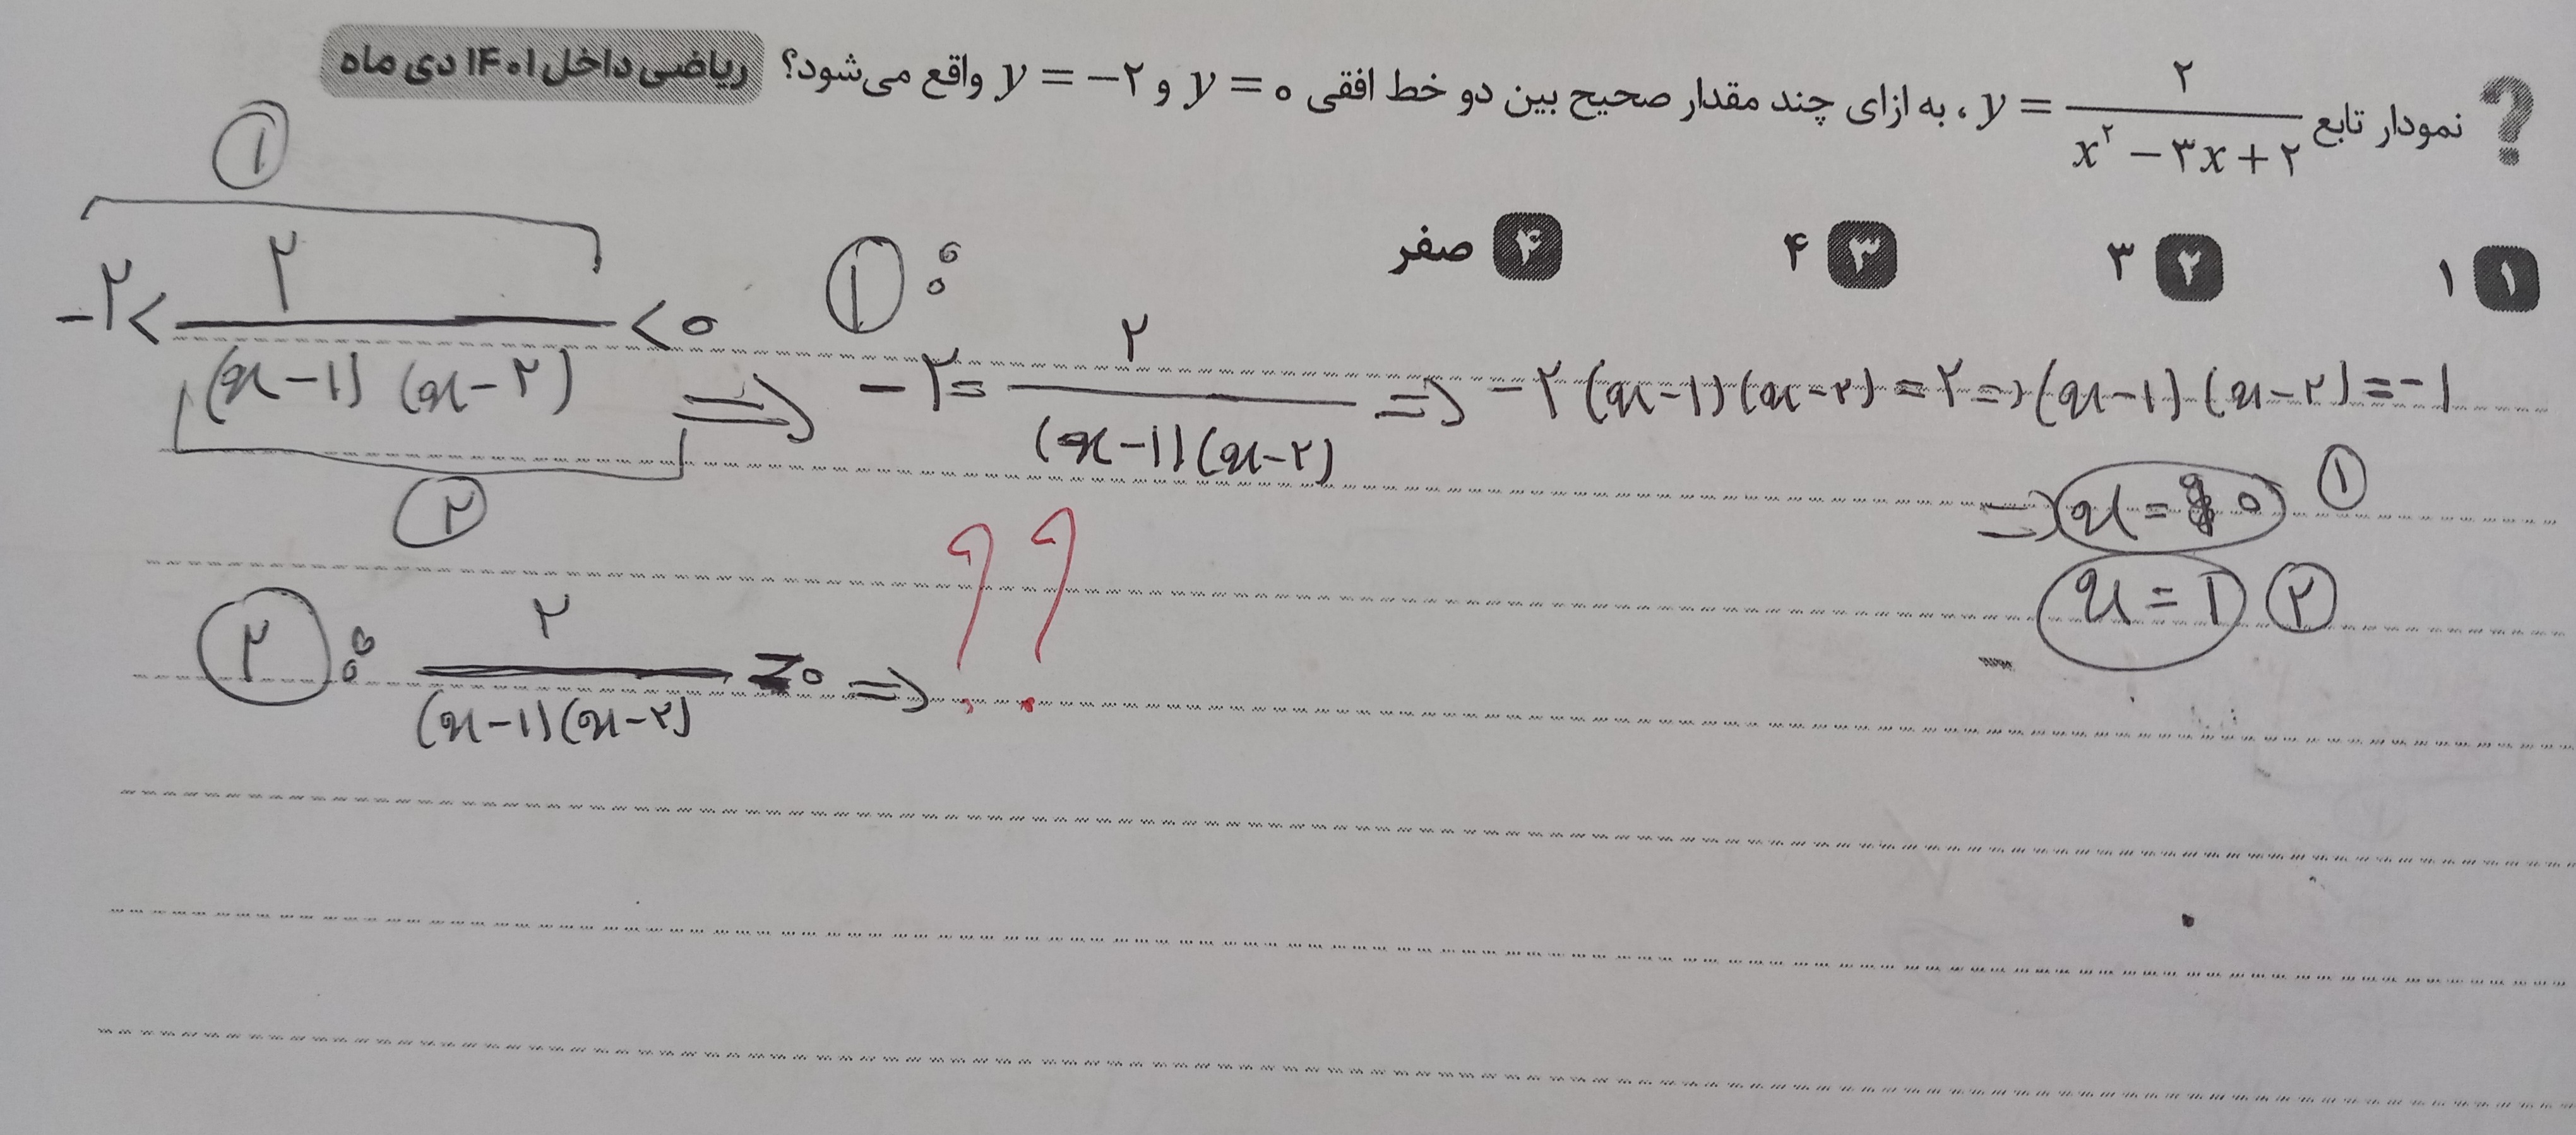 نمودار تابع y = ۲ / x² − ۳x + ۲ ، به ازای چند مقدار صحیح بین دو خط افقی y = ۰ و y = −۲ واقع می‌شود؟ ریاضی داخل ۱۴۰۱ دی ماه
۱ ۱ ۲ ۳ ۳ ۴ ۴ صفر
①
−۲ < ۲ / (x−۱)(x−۲) < ۰
②
① : −۲ = ۲ / (x−۱)(x−۲) ⇒ −۲(x−۱)(x−۲) = ۲ ⇒ (x−۱)(x−۲) = −۱
⇒ x = ۰ ①
x = ۱ ②
② : ۲ / (x−۱)(x−۲) = ۰ ⇒ ؟؟